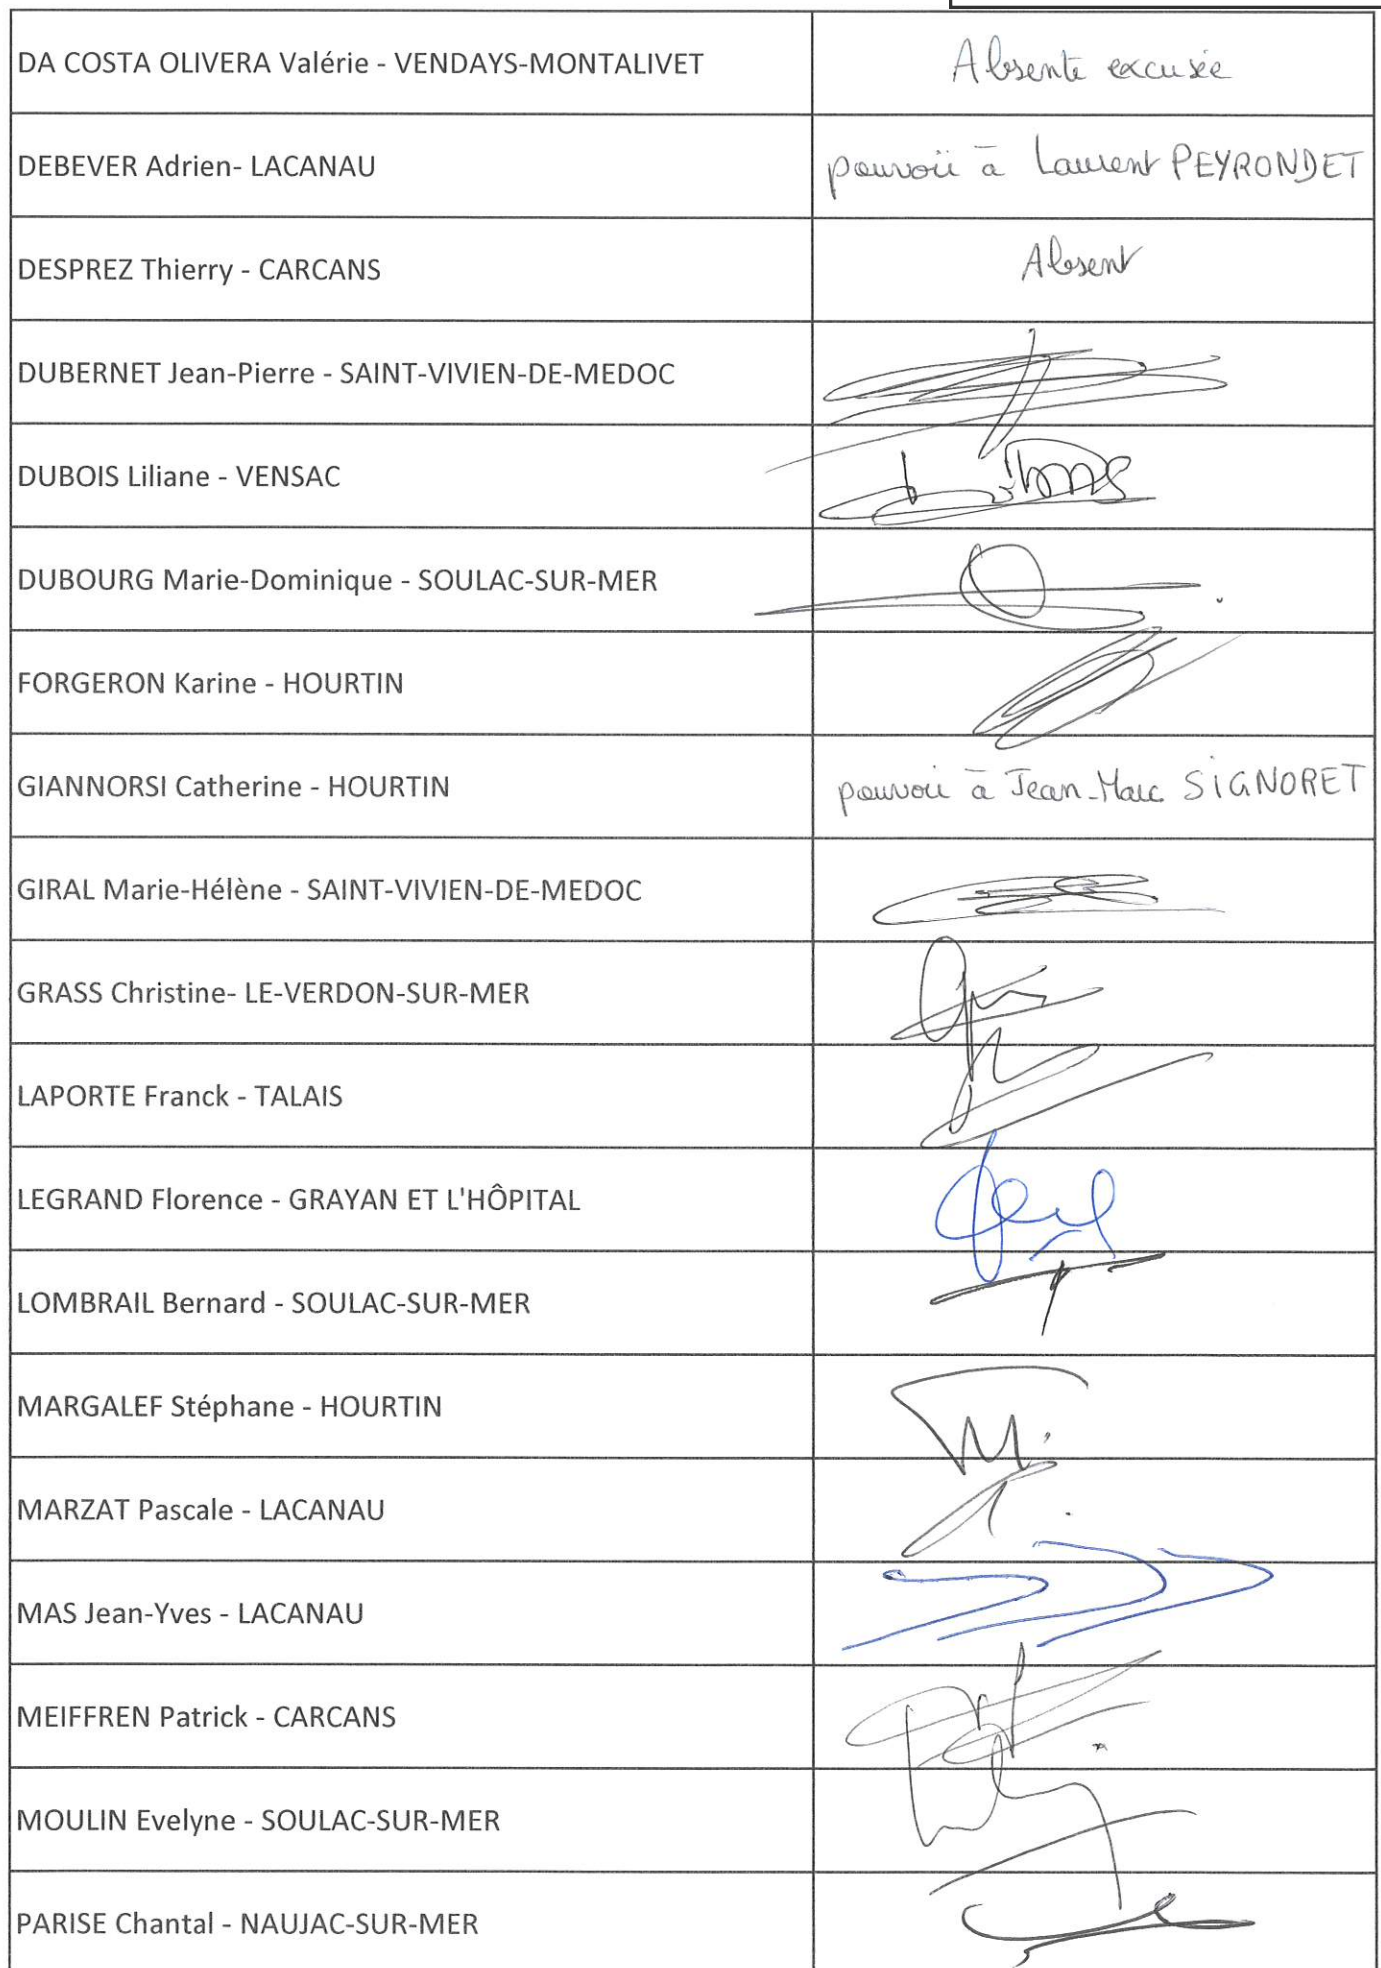 DA COSTA OLIVERA Valérie - VENDAYS-MONTALIVET
Absente excusée
DEBEVER Adrien- LACANAU
pouvoir à Laurent PEYRONDET
DESPREZ Thierry - CARCANS
Absent
DUBERNET Jean-Pierre - SAINT-VIVIEN-DE-MEDOC
DUBOIS Liliane - VENSAC
DUBOURG Marie-Dominique - SOULAC-SUR-MER
FORGERON Karine - HOURTIN
GIANNORSI Catherine - HOURTIN
pouvoir à Jean-Marc SIGNORET
GIRAL Marie-Hélène - SAINT-VIVIEN-DE-MEDOC
GRASS Christine- LE-VERDON-SUR-MER
LAPORTE Franck - TALAIS
LEGRAND Florence - GRAYAN ET L'HÔPITAL
LOMBRAIL Bernard - SOULAC-SUR-MER
MARGALEF Stéphane - HOURTIN
MARZAT Pascale - LACANAU
MAS Jean-Yves - LACANAU
MEIFFREN Patrick - CARCANS
MOULIN Evelyne - SOULAC-SUR-MER
PARISE Chantal - NAUJAC-SUR-MER